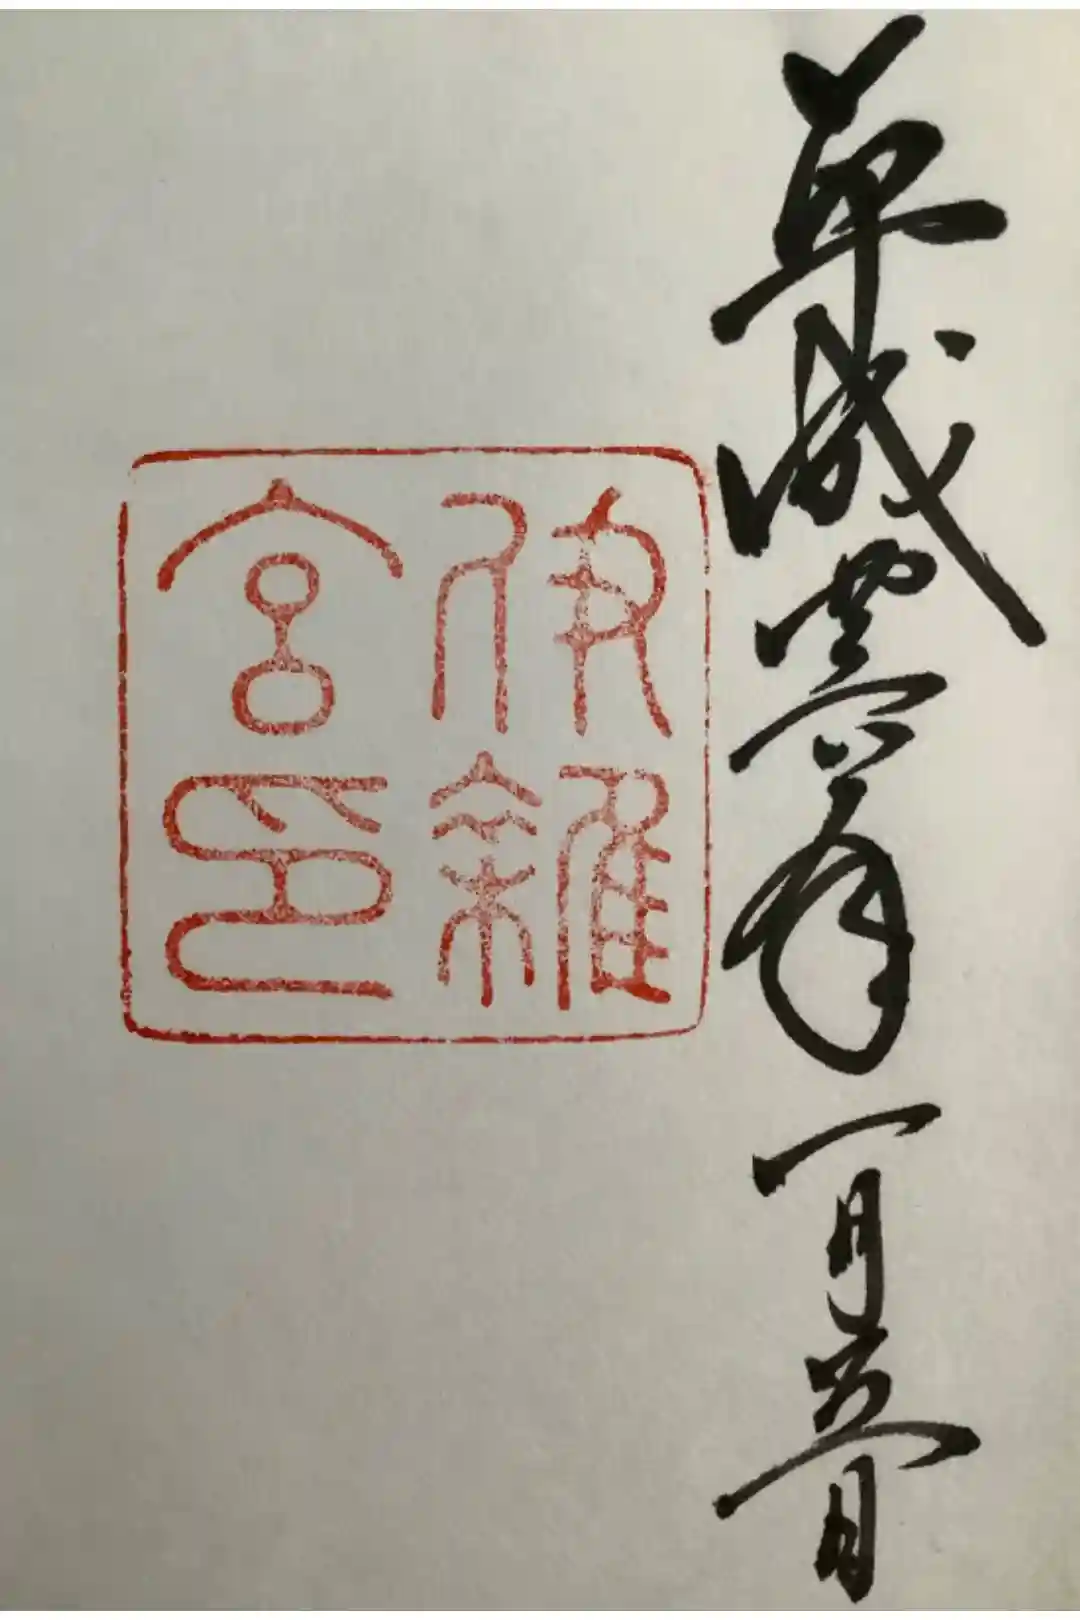 平成年一月五日
伊雜
宮印